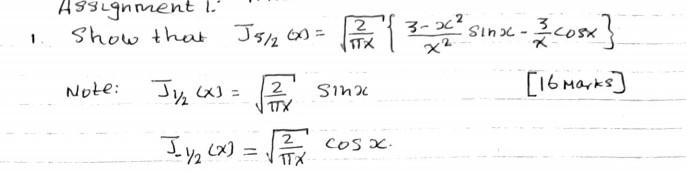 Assignment 1.
1. Show that J_{5/2}(x) = √(2/πx) { (3-x²)/x² sinx - 3/x cosx }
Note: J_{1/2}(x) = √(2/πx) sinx [16 Marks]
J_{-1/2}(x) = √(2/πx) cosx.